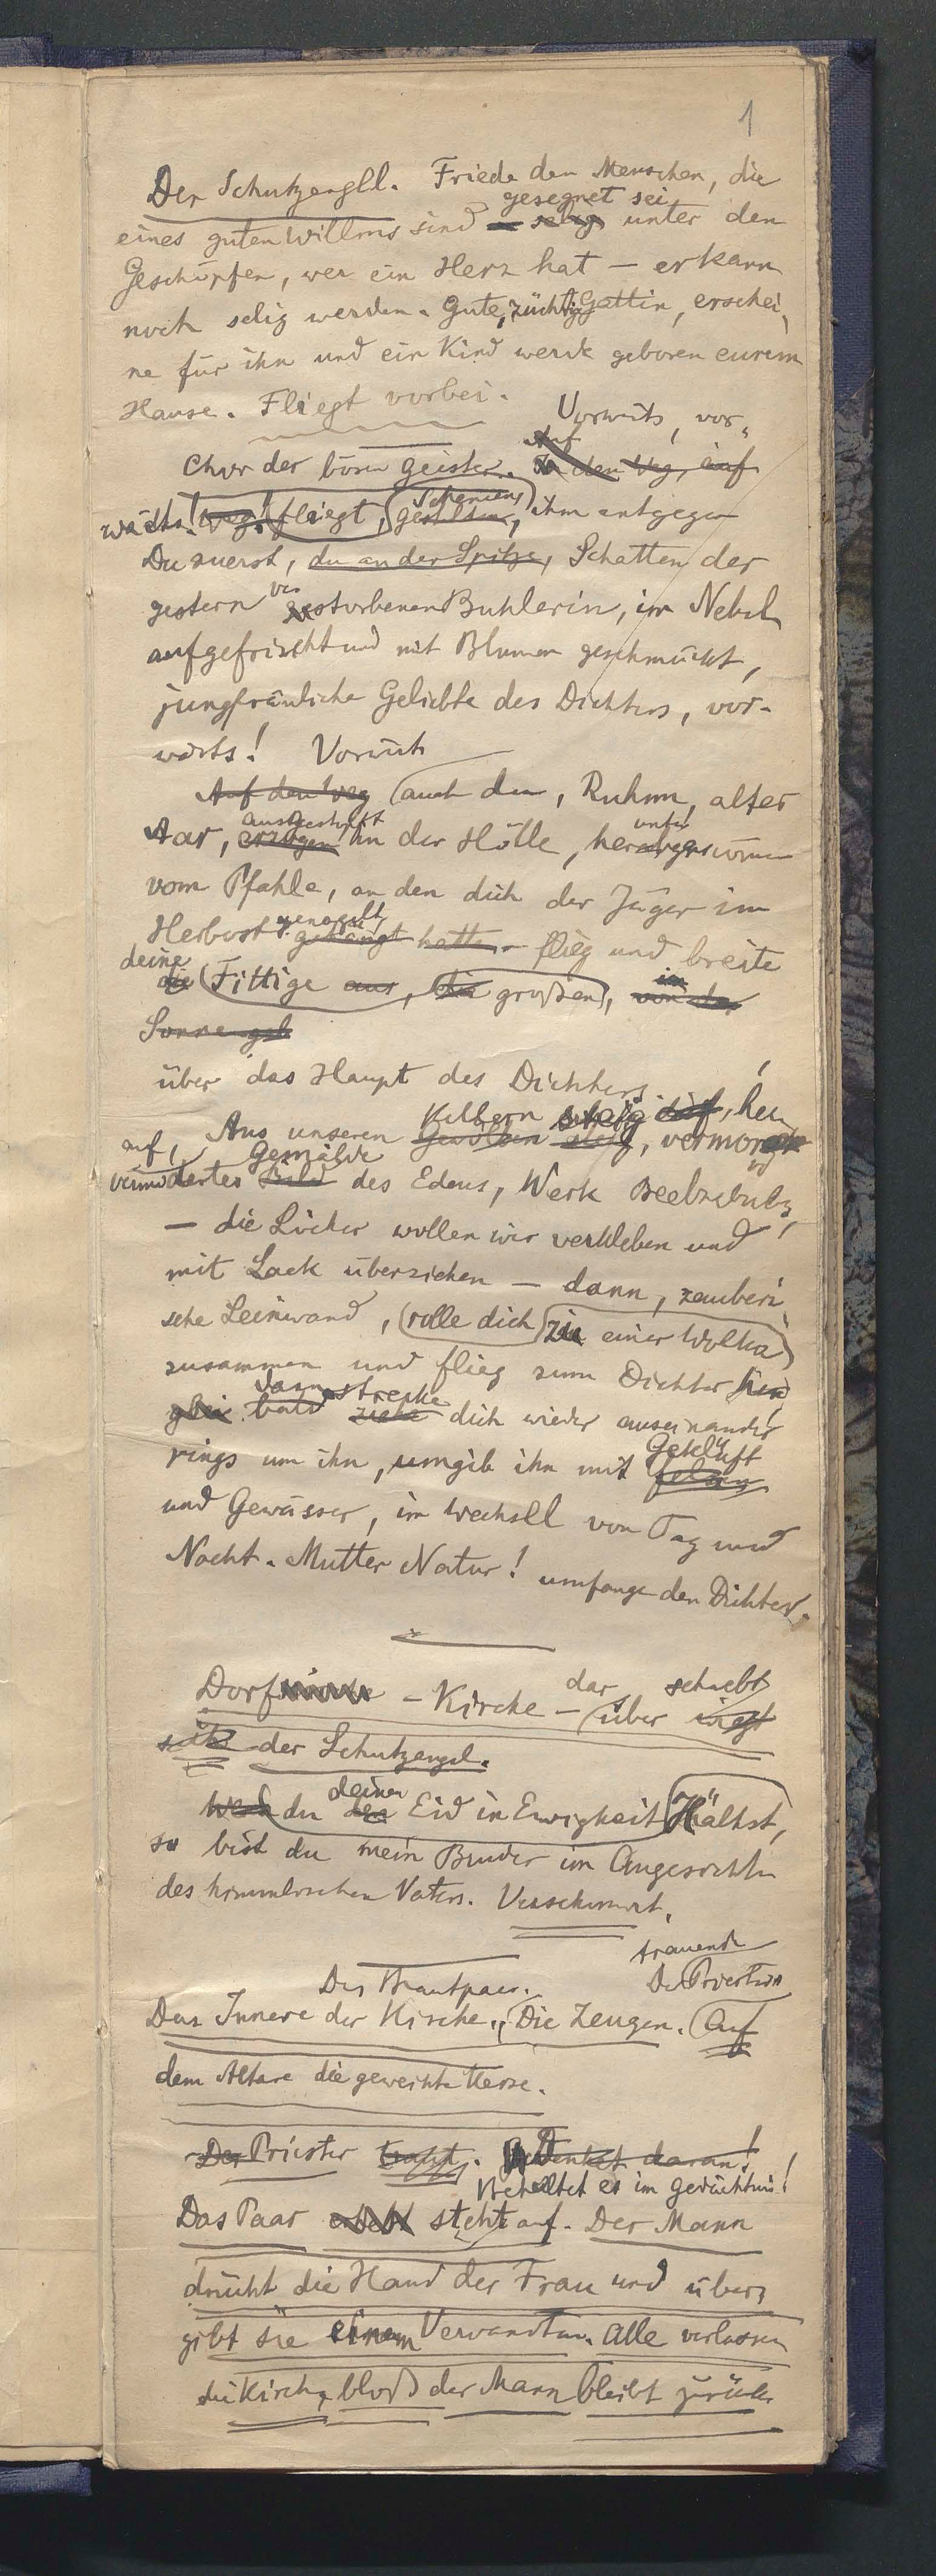 1
Der Schutzengell. Friede den Menschen, die
gesegnet sei
eines guten Willens sind – selig unter den
Geschöpfen, wer ein Herz hat – er kann
noch selig werden. Gute, züchtige Gattin, erschei-
ne für ihn und ein Kind werde geboren eurem
Hause. Fliegt vorbei.
Vorwärts, vor-
Auf
Chor der bösen Geister. den Weg, auf
wärts! weg! fliegt, ihm entgegen
Du zuerst, du an der Spitze, Schatten der
ver
gestern gestorbenen Buhlerin, im Nebel
aufgefrischt und mit Blumen geschmückt,
jungfräuliche Geliebte des Dichters, vor-
wärts! Vorwärts
Auf den Weg auch du, Ruhm, alter
ausgestopft unter
Aar, erzogen in der Hölle, 
vom Pfahle, an den dich der Jäger im
Herbst gehängt hatte – flieg und breite
deine
die Fittige aus, die großen, von der
Sonne gelb
über das Haupt des Dichters
Kellern steig auf, her-
Aus unseren Gewölben steig, vermoder-
auf, Gemälde
dertes Bild des Edens, Werk Beelzebubs,
– die Löcher wollen wir verkleben und
mit Lack überziehen – dann, zauberi-
sche Leinwand, rolle dich zu einer Wolke
zusammen und flieg zum Dichter hin
dann strecke
bald ziehe dich wieder auseinander
Geklüft
rings um ihn, umgib ihn mit Felsen
und Gewässer, im Wechsell von Tag und
Nacht. Mutter Natur! umfange den Dichter.
dar schwebt
Dorf – Kirche – über wiegt
sich der Schutzengel.
deinen
Wenn du den Eid in Ewigkeit hältst,
so bist du mein Bruder im Angesichte
des himmlischen Vaters. Verschwindet.
trauende
Das Brautpaar. Der Priester
Das Innere der Kirche. Die Zeugen. Auf
dem Altare die geweihte Kerze.
Der Priester traut. Denket daran!
Behaltet es im Gedächtnis!
Das Paar erhebt steht auf. Der Mann
drückt die Hand der Frau und über-
gibt sie einem Verwandten. Alle verlassen
die Kirche, bloß der Mann bleibt zurück.